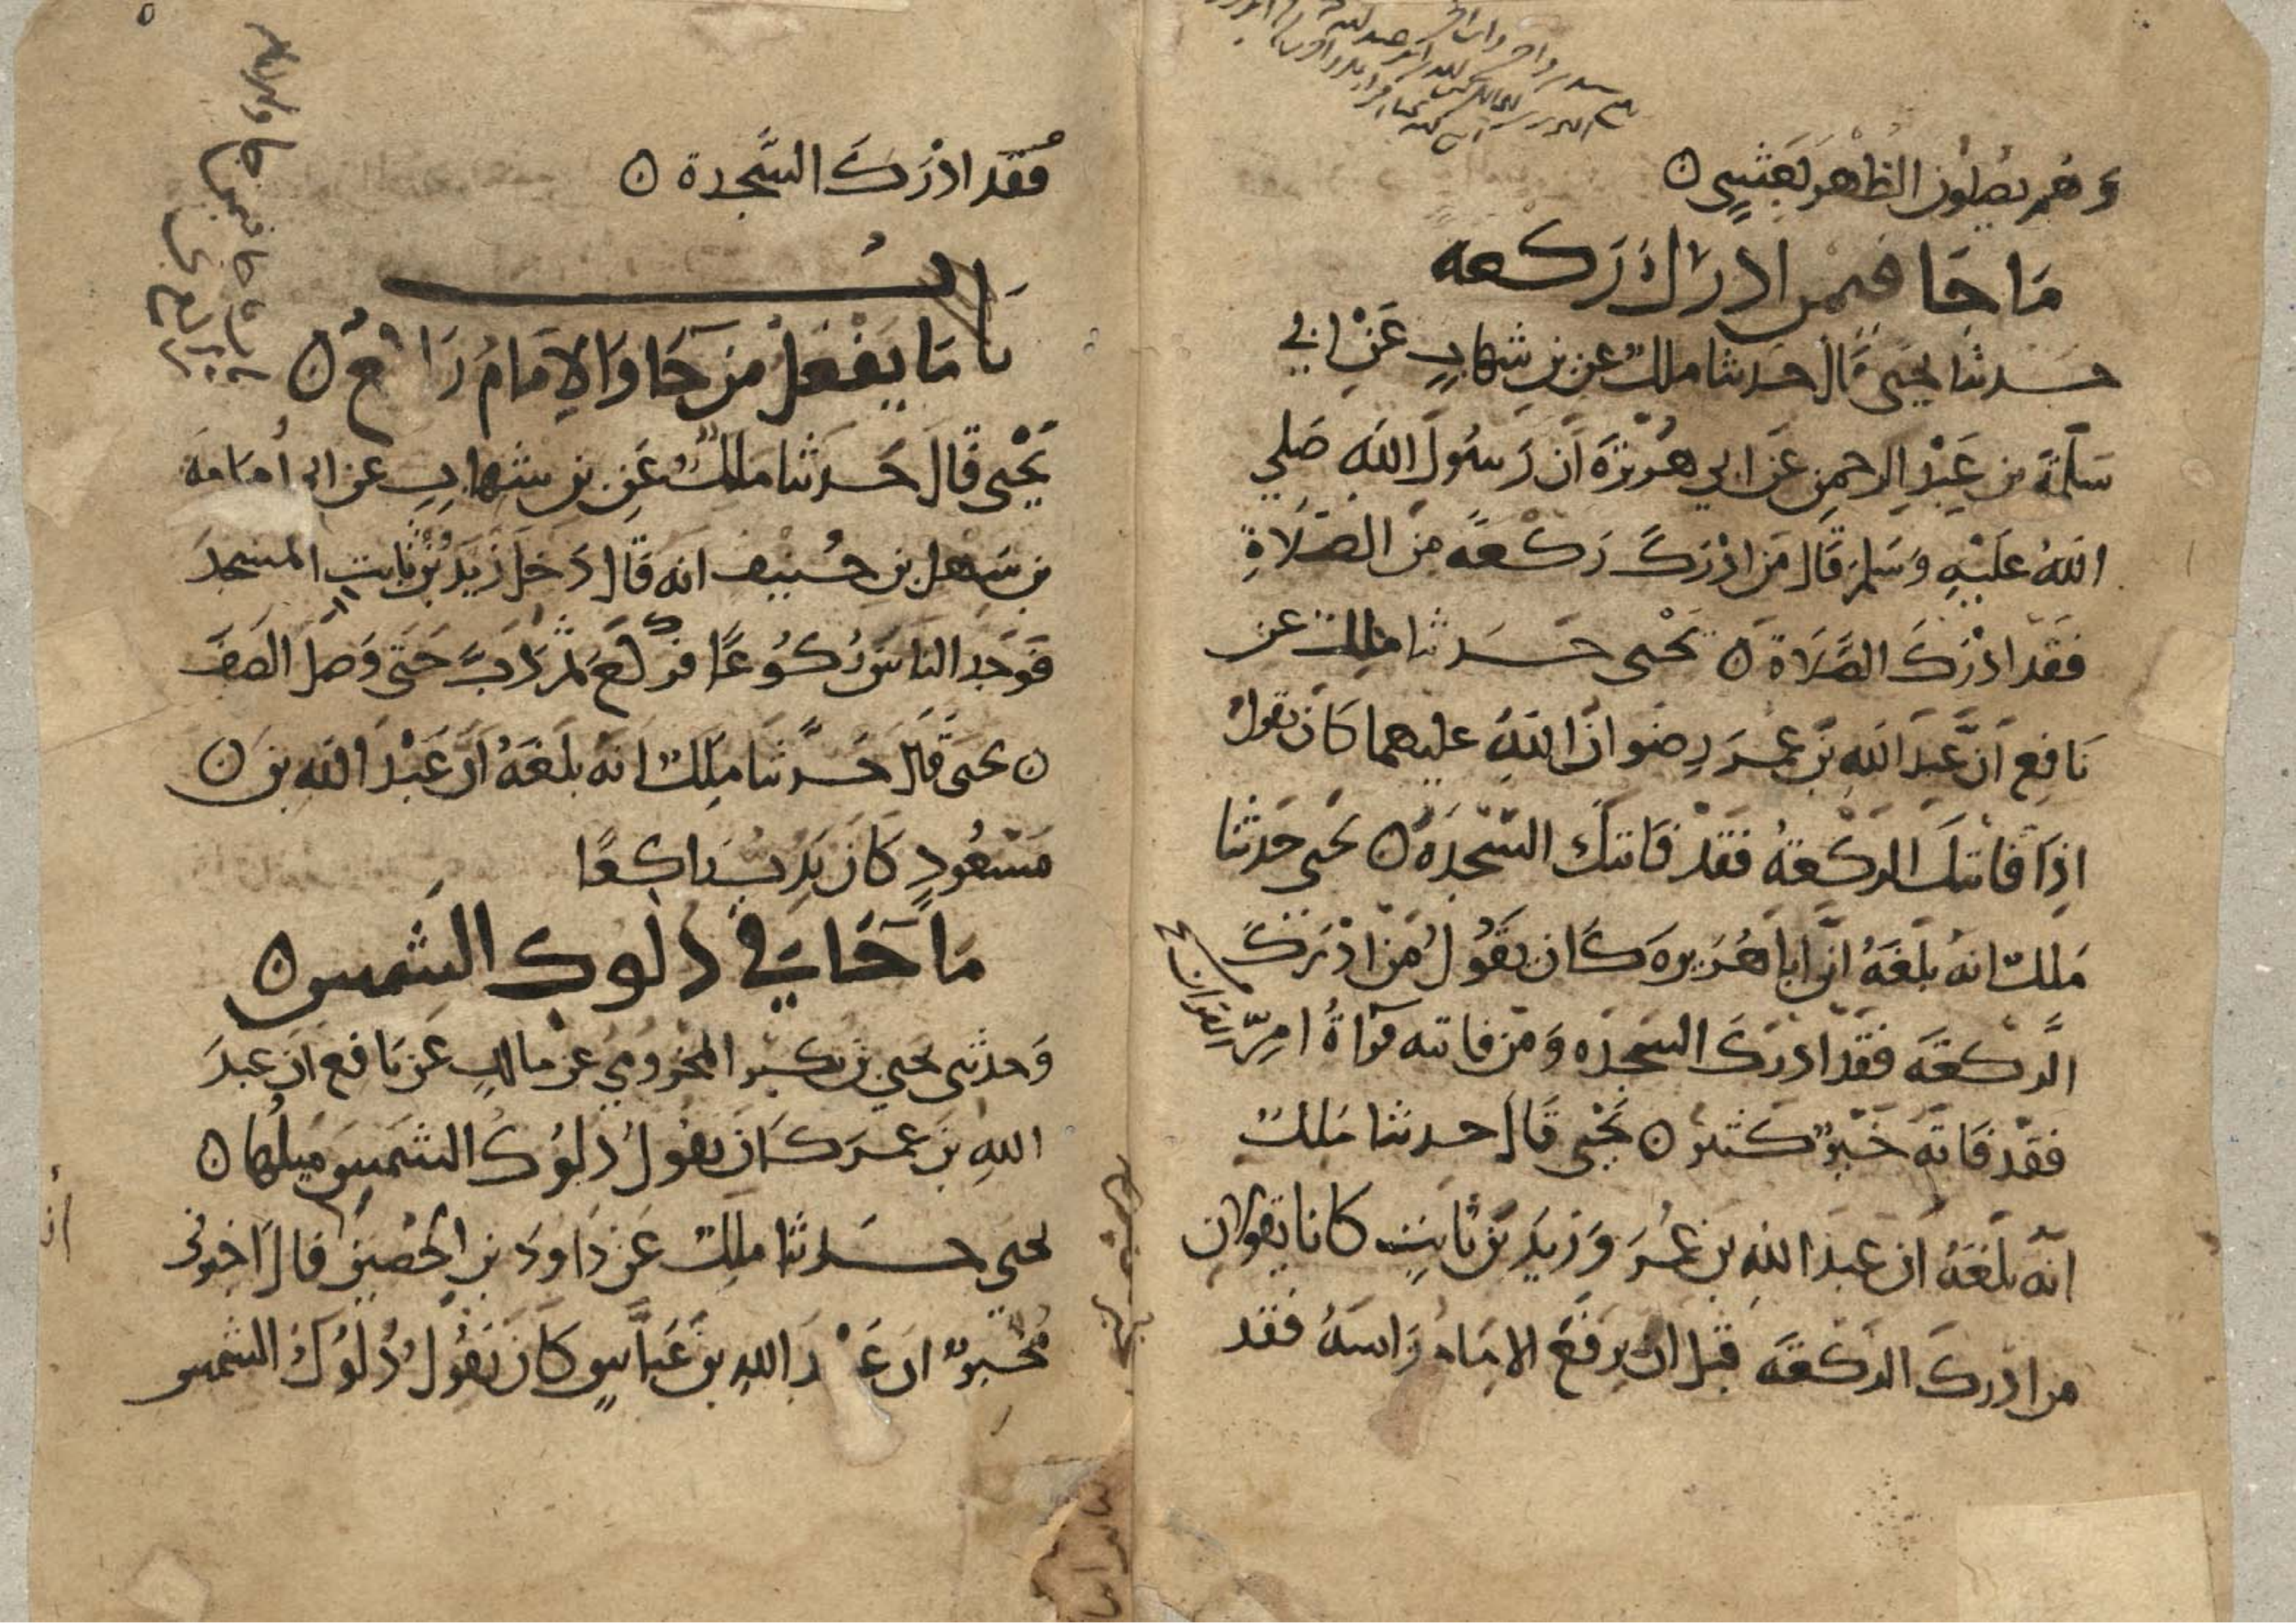 وَهُم يصلون الظهر بعَشِيٍّ ن
مَا جَا فيمن ادرك ركعه
حدثنا يحيى قال حدثنا ملك عن بن شهاب عَنْ ابي
سَلَمَة بن عَبْد الرحمن عَن ابي هُرَيْرَة ان رَسُولَ الله صَلى
اللهُ عَلَيْهِ وَسَلم قَالَ مَن ادْرَكَ رَكْعَةً مِنَ الصَّلَاةِ
فَقَد ادْرَكَ الصَّلَاةَ ن يَحْيى حَدثنا ملك عن
نَافِعٍ اَنَّ عَبْدَ الله بن عُمَرَ رضوان اللهِ عليهما كَان يقول
اِذَا فاتتك الركعةُ فَقَدْ فَاتتكَ السَّجْدَةُ ن يحيى حَدثنا
مَلك انه بَلَغَهُ انَّ ابا هُرَيره كَان يَقُولُ مَنْ ادْرَكَ
الرَّكعَةَ فَقَد ادْرَكَ السَّجده وَمَن فاتته قرآةُ امِّ القران
فَقَدْ فَاتَهُ خَيْرٌ كثير ن يَحْيى قَالَ حدثنا مَلك
انَّه بَلَغَهُ ان عبدَ اللهِ بن عُمَرَ وَزَيدَ بن ثابِتٍ كانا يقولان
من ادرك الركعَةَ قَبل ان يرفَعَ الامامُ رَاسَهُ فَقَد
فَقَد ادْرَكَ السَّجْدة ن
بَابُ
مَا يَفْعَلُ مَن جَا وَالاِمَامُ رَاكعٌ ن
يَحْيى قَالَ حَدثنا مَلكٌ عَنِ بن شهابٍ عن ابي اُمَامَةَ
بن سَهل بنِ حُنيف انه قَالَ دَخَل زَيدُ بن ثَابت المسجدَ
فَوَجد الناسَ رُكُوعًا فركَعَ ثم دَبَّ حَتى وَصلَ الصَفَّ
ن يحيى قَالَ حَدثنا مَلِك انهُ بَلَغَهُ ان عَبْدَ الله بن ن
مَسْعُودٍ كَانَ يَدِبُّ رَاكِعًا
مَا جَا في دلوك الشمس ن
وَحدثني يحيى بن بكير المخزومي عن مالكٍ عَن نَافعٍ ان عبدَ
اللهِ بنَ عمر كَان يقولُ دُلوُكُ الشَّمسِ مَيلُها ن
يحيى حدثنا مَلِك عَن دَاودَ بن الحُصينِ قال اَخبرني
مُخْبِرٌ ان عَبْدَ اللهِ بنَ عَبَّاسٍ كَانَ يَقُولُ دُلُوكُ الشمس